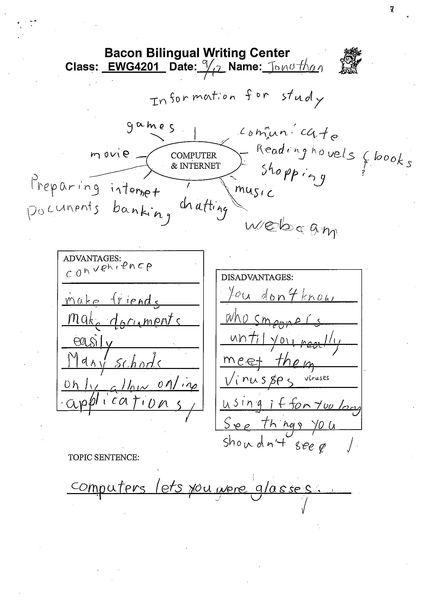 Bacon Bilingual Writing Center
Class: EWG4201 Date: 9/17 Name: Jonathan
Information for study
games
comunicate
movie
COMPUTER
& INTERNET
Reading novels & books
shopping
Preparing
Documents
internet
banking
chatting
music
webcam
ADVANTAGES:
convenience
make friends
make documents
easily
Many schools
only allow online
applications
DISADVANTAGES:
You don't know
who someone is
until you really
meet them
Virusses viruses
using it for too long
See things you
shouldn't see
TOPIC SENTENCE:
computers lets you were glasses.